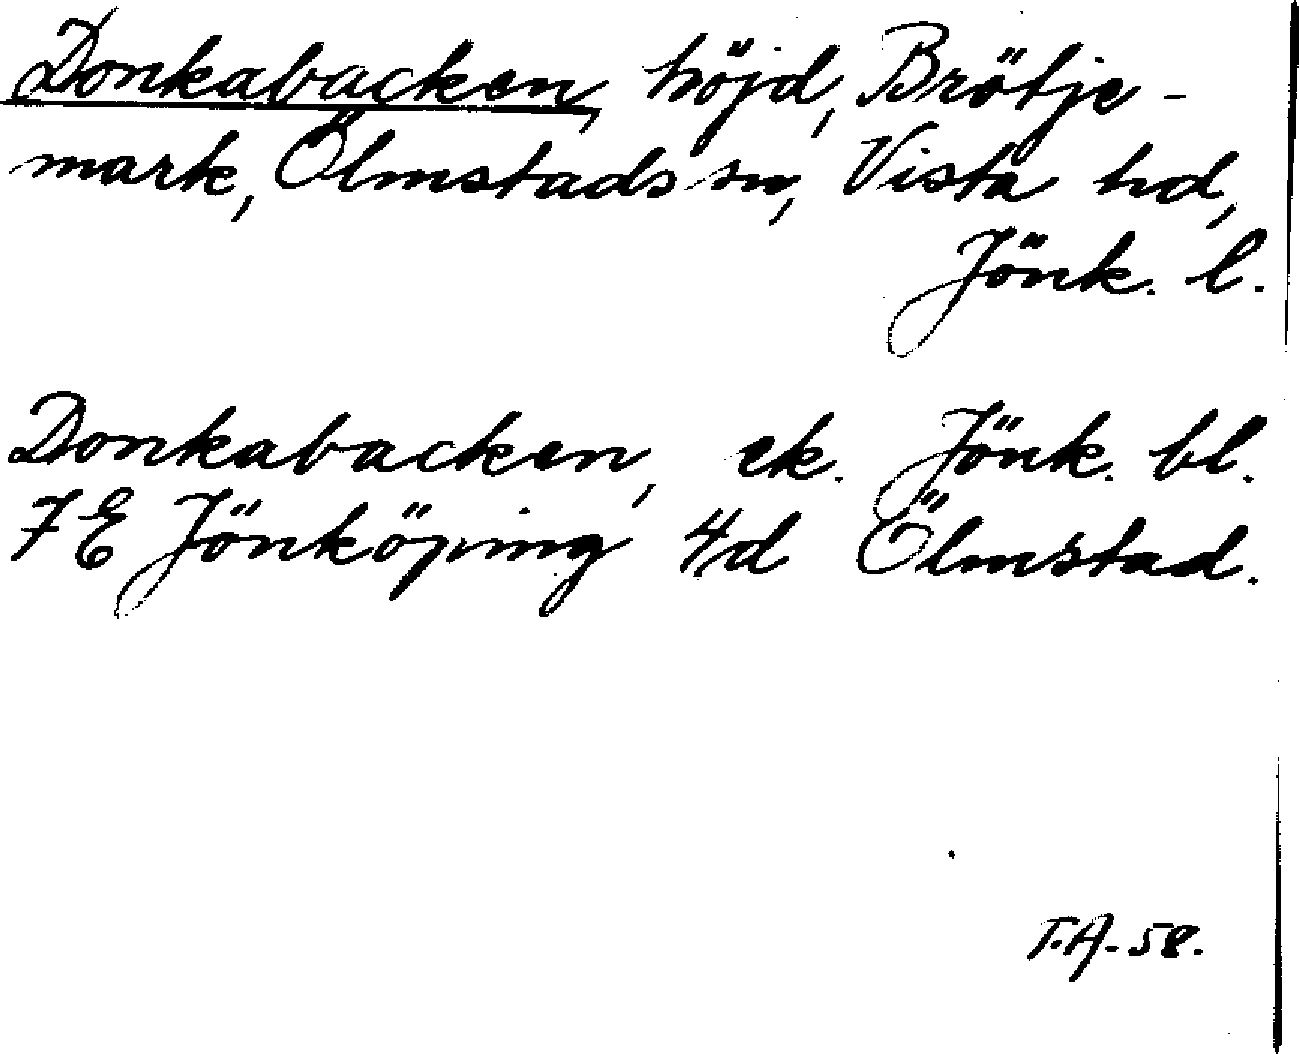 Donkabacken, höjd, Brötje-
mark, Ölmstads sn, Vista hd,
Jönk. l.
Donkabacken, ek. Jönk. bl.
7E Jönköping 4d Ölmstad.
T.A. 58.